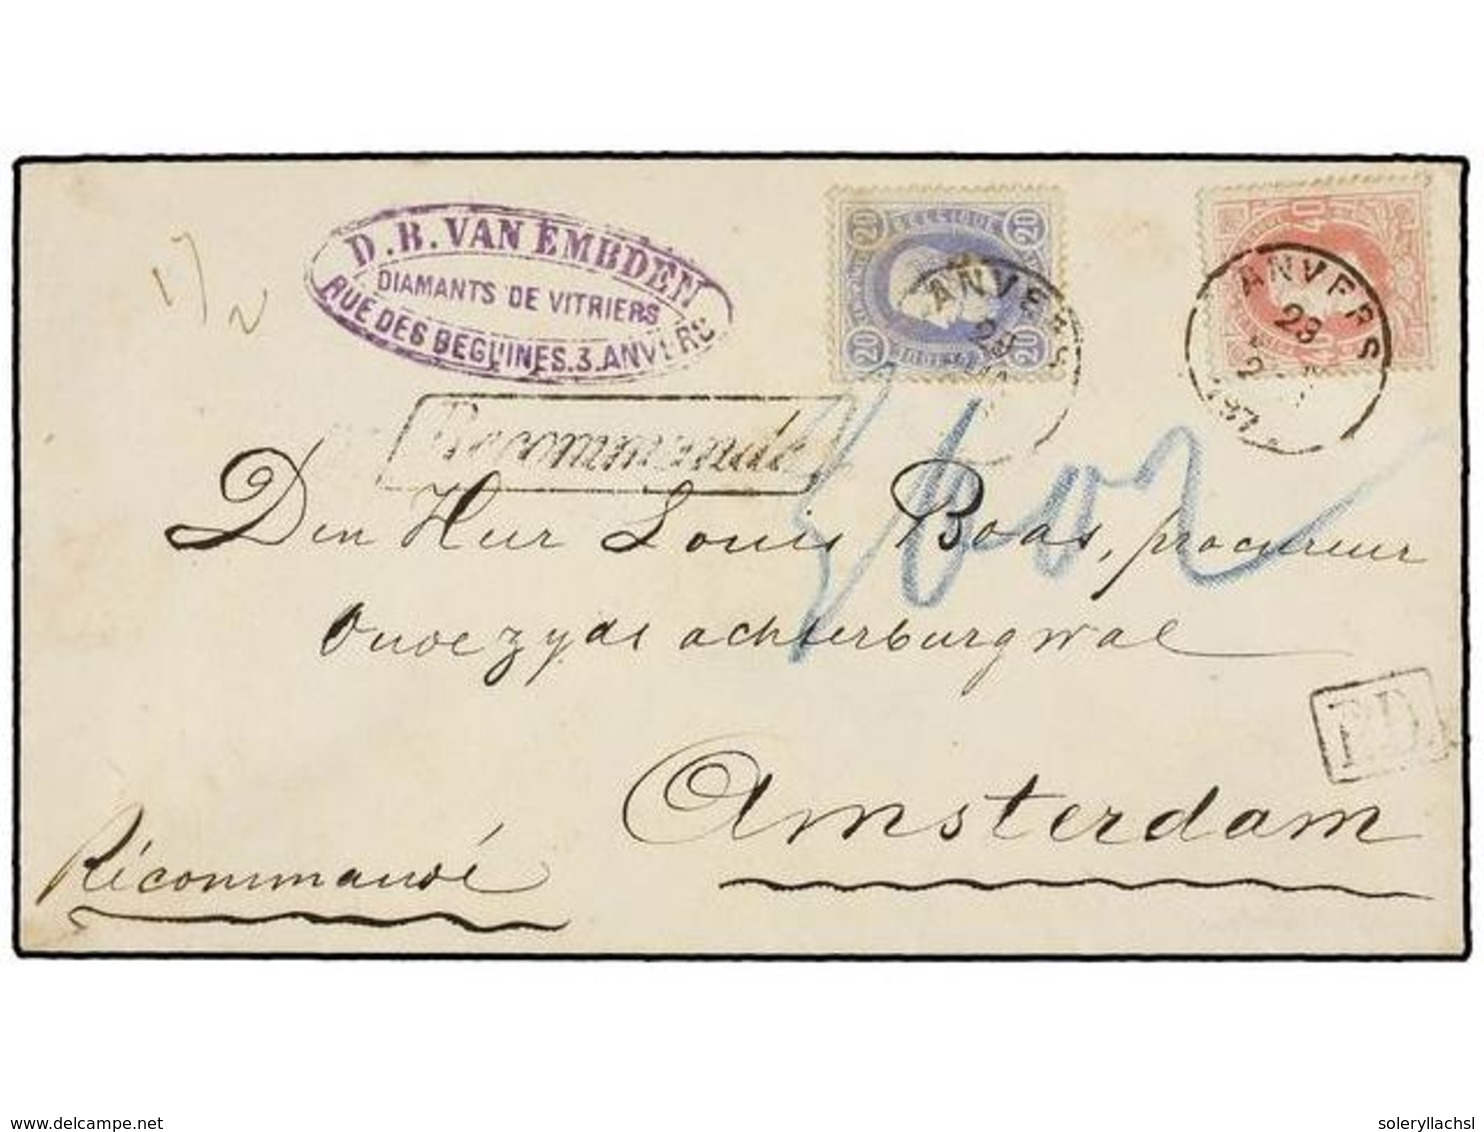 D.B. VAN EMBDEN
DIAMANTS DE VITRIERS
RUE DES BEGUINES.3.ANVERS
20 BELGIQUE 20
20 20
ANVERS
ANVERS
23
Recommandé
Den Heer Louis Boas, procureur
Oudezyds achterburgwal
Amsterdam
Récommandé
PD
www.delcampe.net
soleryllachsl